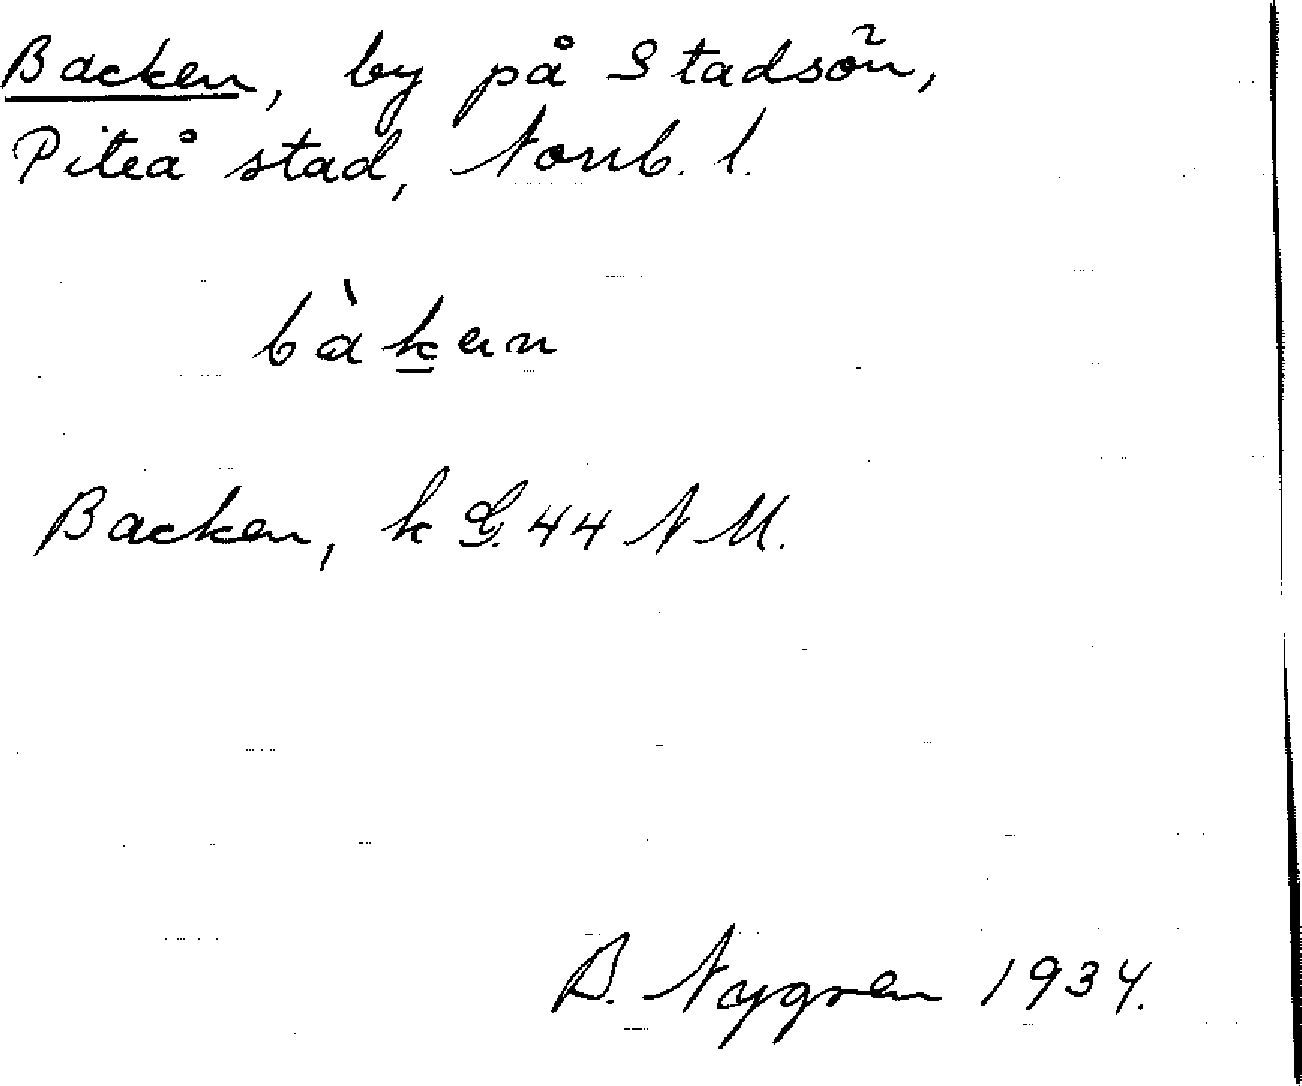 Backen, by på Stadsön,
Piteå stad, Norrb. l.
bàk̲en
Backen, k G. 44 N M.
B. Nygren 1934.